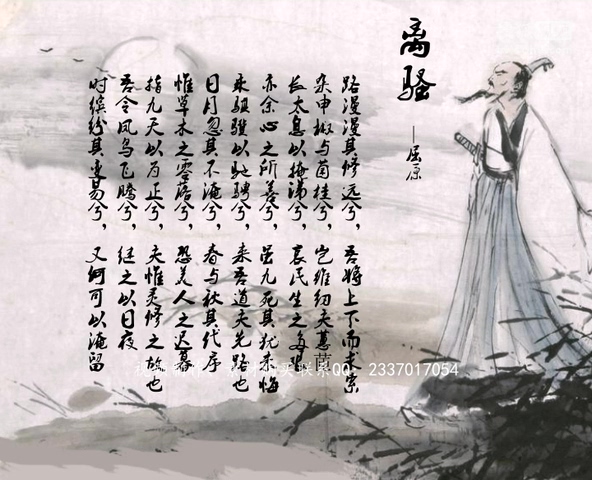 离骚
——屈原
路漫漫其修远兮，吾将上下而求索
杂申椒与菌桂兮，岂维纫夫蕙
长太息以掩涕兮，哀民生之多艰
亦余心之所善兮，虽九死其犹未悔
乘骐骥以驰骋兮，来吾道夫先路也
日月忽其不淹兮，春与秋其代序
惟草木之零落兮，恐美人之迟暮
指九天以为正兮，夫惟灵修之故也
吾令凤鸟飞腾兮，继之以日夜
时缤纷其变易兮，又何可以淹留
买联系QQ：2337017054